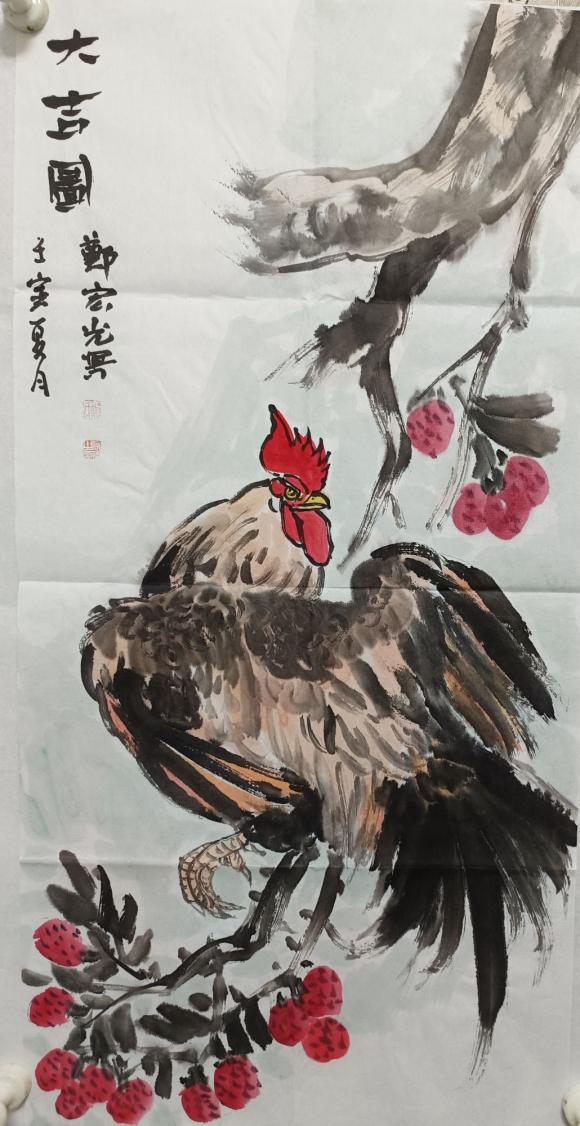 大吉圖
鄭宗光畧
壬寅夏月